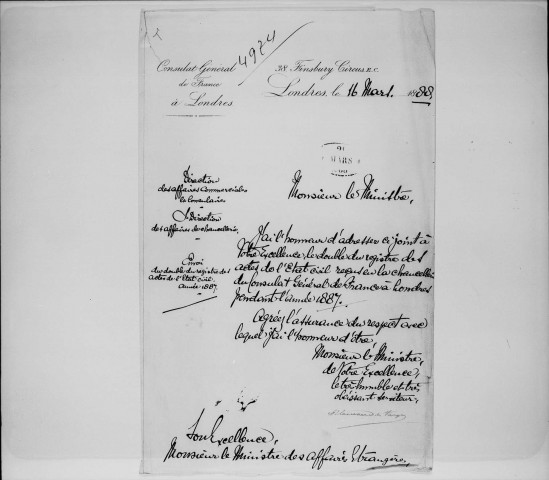 4974
Consulat Général
de France
à Londres
38 Finsbury Circus E.C.
Londres, le 16 Mars 1888
MARS
Direction
des affaires Commerciales
et Consulaires
S/Direction
des affaires de chancellerie
Envoi
du double du registre des
actes de l'Etat civil
année 1887
Monsieur le Ministre,
J'ai l'honneur d'adresser ci joint à
Votre Excellence, le double du registre des
actes de l'Etat civil reçus en la chancellerie
du Consulat Général de France à Londres
pendant l'année 1887.
Agréez l'assurance du respect avec
lequel j'ai l'honneur d'être,
Monsieur le Ministre,
de Votre Excellence,
le très humble et très
obéissant serviteur.
Son Excellence,
Monsieur le Ministre des Affaires Etrangères,